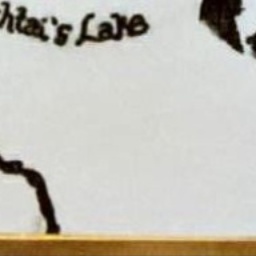 htai's Lake